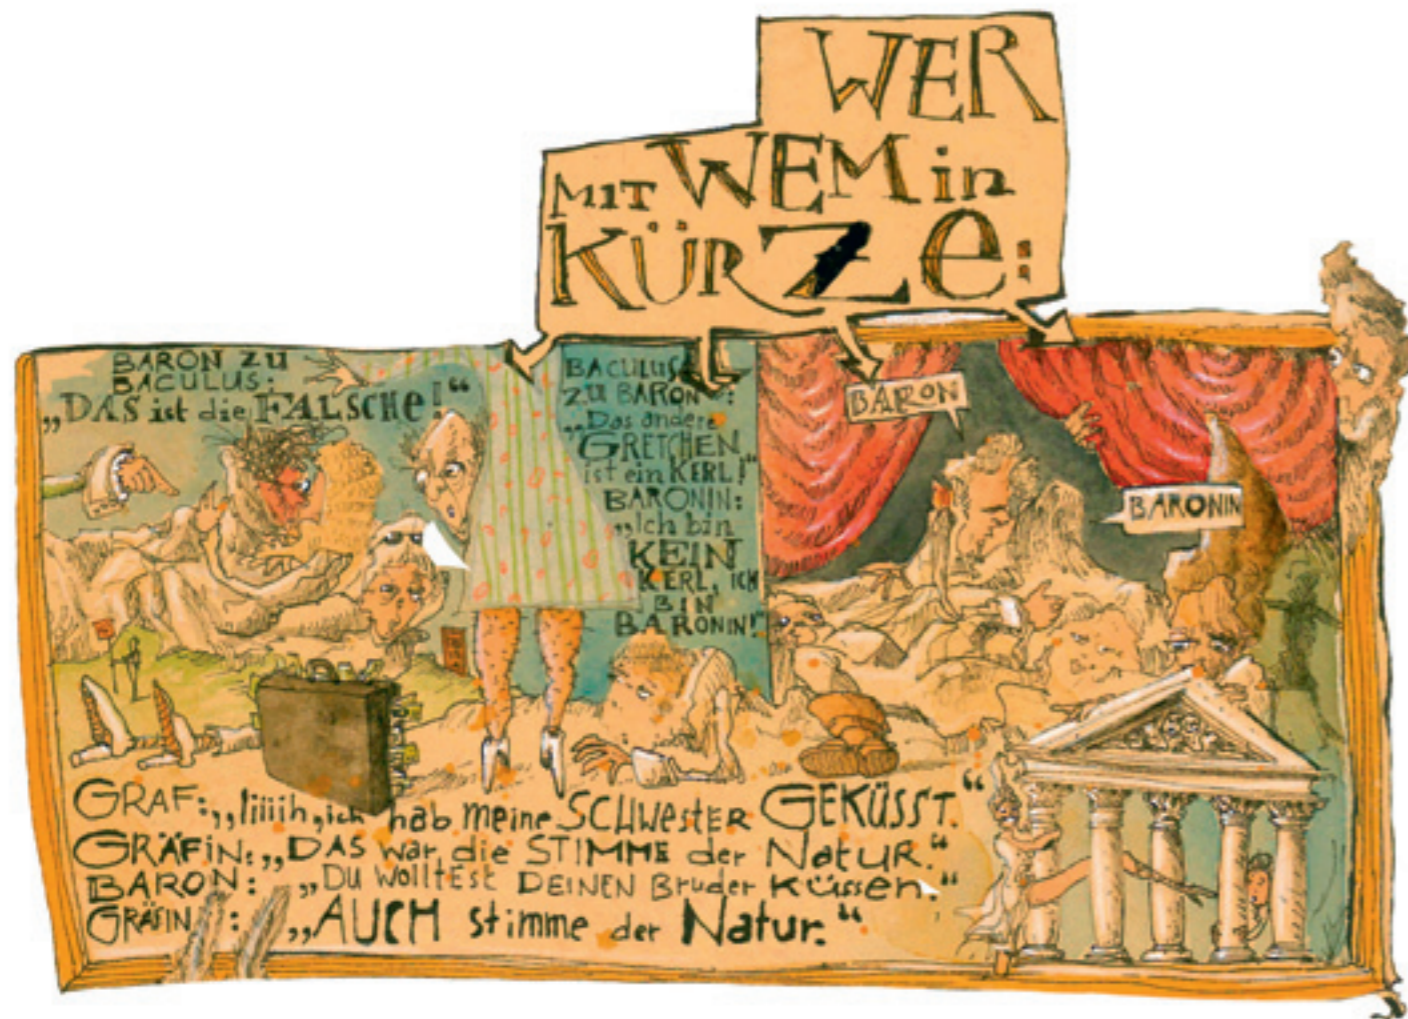 WER
MIT WEM in
KÜRZE:
BARON ZU
BACULUS:
„DAS ist die FALSCHE!“
BACULUS
ZU BARON:
„Das andere
GRETCHEN
ist ein KERL!“
BARONIN:
„Ich bin
KEIN
KERL, ICH
BIN
BARONIN!“
BARON
BARONIN
GRAF: „Iiiiih, ich hab meine SCHWESTER GEKÜSST.“
GRÄFIN: „DAS war die STIMME der NATUR.“
BARON: „DU WOLLTEST DEINEN Bruder küssen.“
GRÄFIN: „AUCH stimme der Natur.“